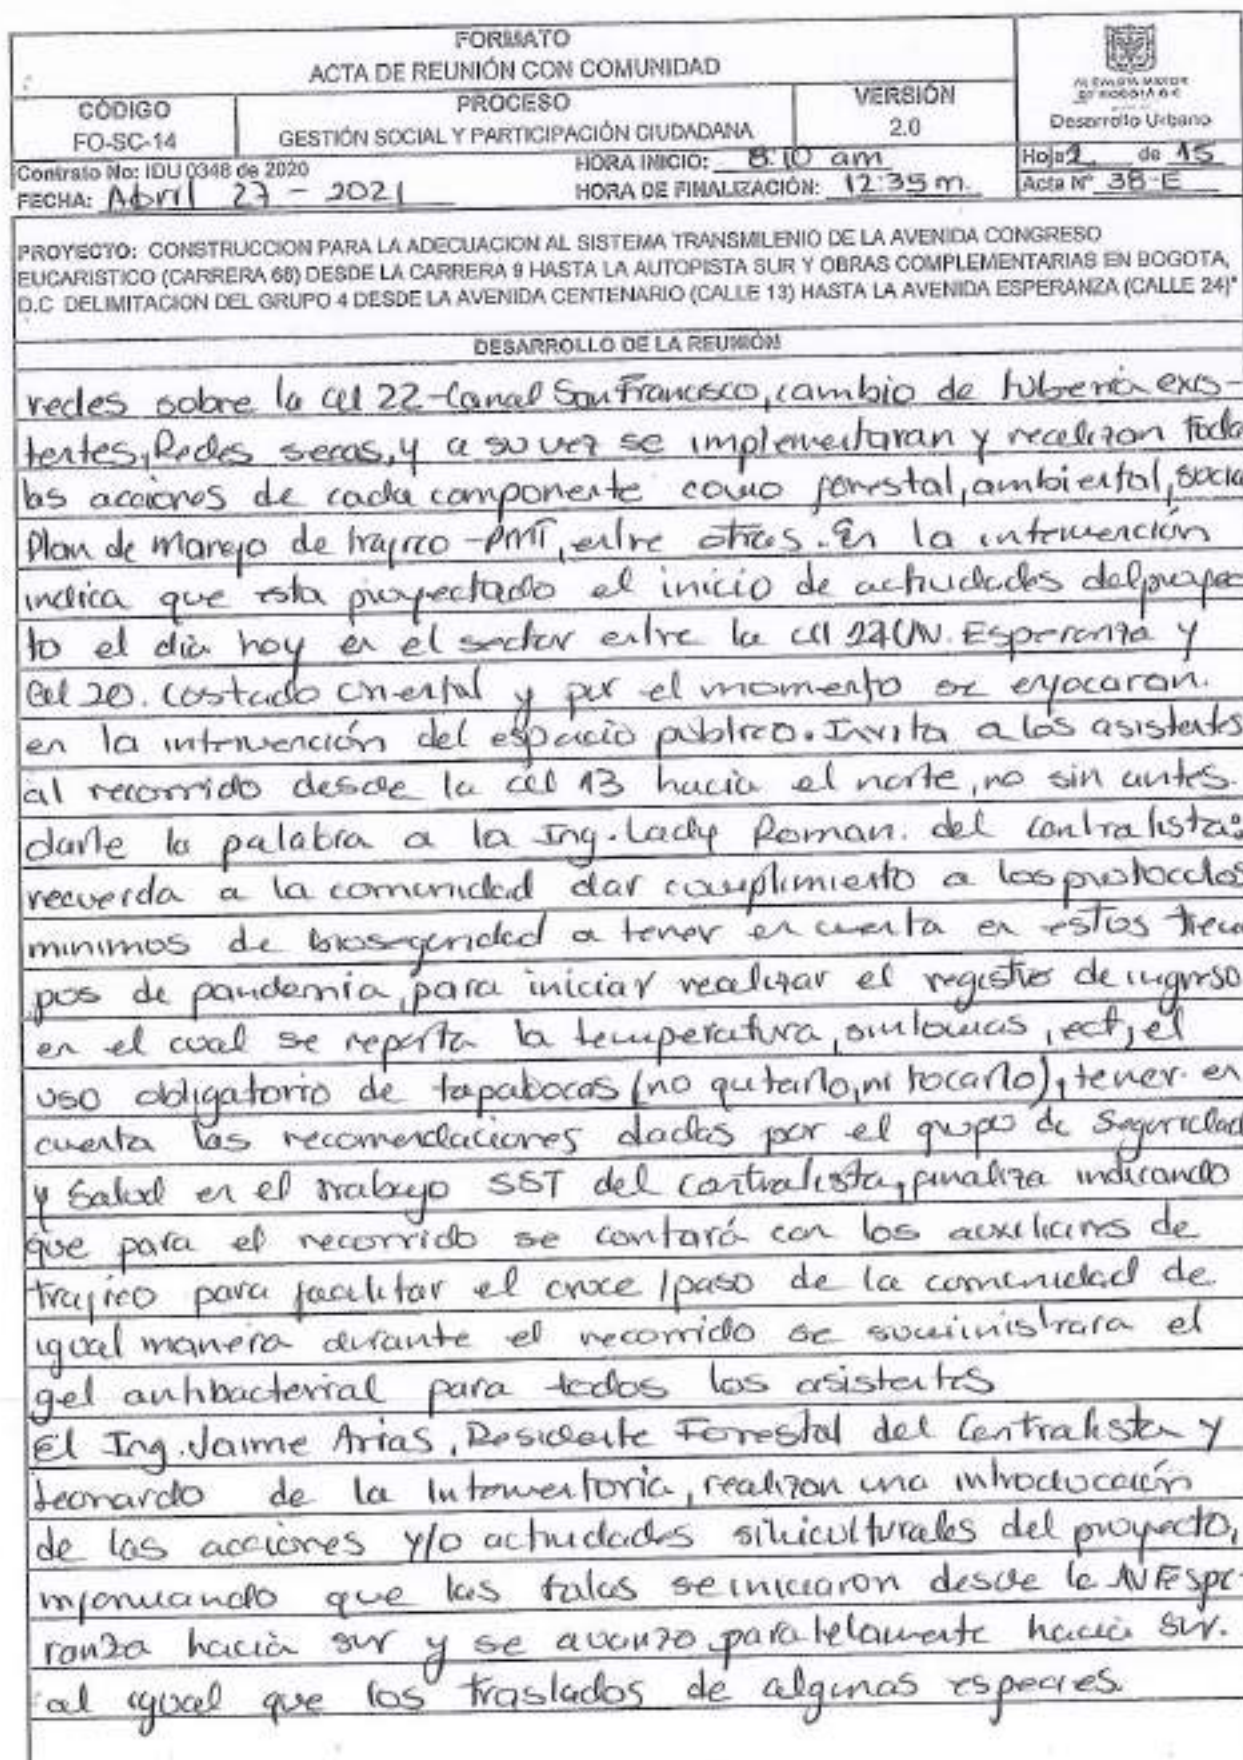 FORMATO
ACTA DE REUNIÓN CON COMUNIDAD
CÓDIGO
FO-SC-14
PROCESO
GESTIÓN SOCIAL Y PARTICIPACIÓN CIUDADANA
VERSIÓN
2.0
ALCALDÍA MAYOR
DE BOGOTÁ D.C.
Desarrollo Urbano
Contrato No: IDU 0348 de 2020
HORA INICIO: 8:10 am
Hoja 2 de 15
FECHA: Abril 27 - 2021
HORA DE FINALIZACIÓN: 12:35 m.
Acta Nº 38-E
PROYECTO: CONSTRUCCION PARA LA ADECUACION AL SISTEMA TRANSMILENIO DE LA AVENIDA CONGRESO
EUCARISTICO (CARRERA 68) DESDE LA CARRERA 9 HASTA LA AUTOPISTA SUR Y OBRAS COMPLEMENTARIAS EN BOGOTA,
D.C DELIMITACION DEL GRUPO 4 DESDE LA AVENIDA CENTENARIO (CALLE 13) HASTA LA AVENIDA ESPERANZA (CALLE 24)"
DESARROLLO DE LA REUNIÓN
redes sobre la cll 22-Canal San Francisco, cambio de tuberia exis-
tentes, Redes secas, y a su vez se implementaran y realizan toda
las acciones de cada componente como forestal, ambiental, socia
Plan de Manejo de trafico -PMT, entre otras. En la intervención
indica que esta proyectado el inicio de actividades del proyec
to el dia hoy en el sector entre la cll 24(AV. Esperanza y
Cll 20. Costado oriental y por el momento se enfocaran.
en la intervención del espacio publico. Invita a los asistentes
al recorrido desde la cll 13 hacia el norte, no sin antes.
darle la palabra a la Ing. Lady Roman. del contratista:
recuerda a la comunidad dar cumplimiento a los protocolos
minimos de bioseguridad a tener en cuenta en estos tiem
pos de pandemia, para iniciar realizar el registro de ingreso
en el cual se reporta la temperatura, sintomas, ect, el
uso obligatorio de tapabocas (no quitarlo, ni tocarlo), tener en
cuenta las recomendaciones dadas por el grupo de Seguridad
y Salud en el trabajo SST del contratista, finaliza indicando
que para el recorrido se contará con los auxiliares de
trafico para facilitar el cruce /paso de la comunidad de
igual manera durante el recorrido se suministrara el
gel antibacterial para todos los asistentes
El Ing. Jaime Arias, Residente Forestal del Contratista y
Leonardo de la Interventoria, realizan una introducción
de las acciones y/o actividades silviculturales del proyecto,
informando que las talas se iniciaron desde la AV Espe-
ranza hacia sur y se avanzo paralelamente hacia sur.
al igual que los traslados de algunas especies.